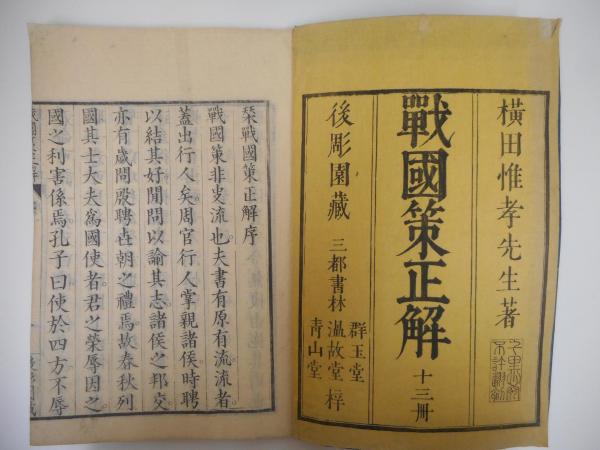 橫田惟孝先生著
戰國策正解 十三冊
後彫園藏 三都書林
群玉堂
温故堂 梓
青山堂
栞戰國策正解序
戰國策非史流也夫書有原有流流者
蓋出行人矣周官行人掌親諸侯時聘
以結其好閒問以諭其志諸侯之邦交
亦有歲問殷聘世朝之禮焉故春秋列
國其士大夫爲國使者君之榮辱因之
國之利害係焉孔子曰使於四方不辱